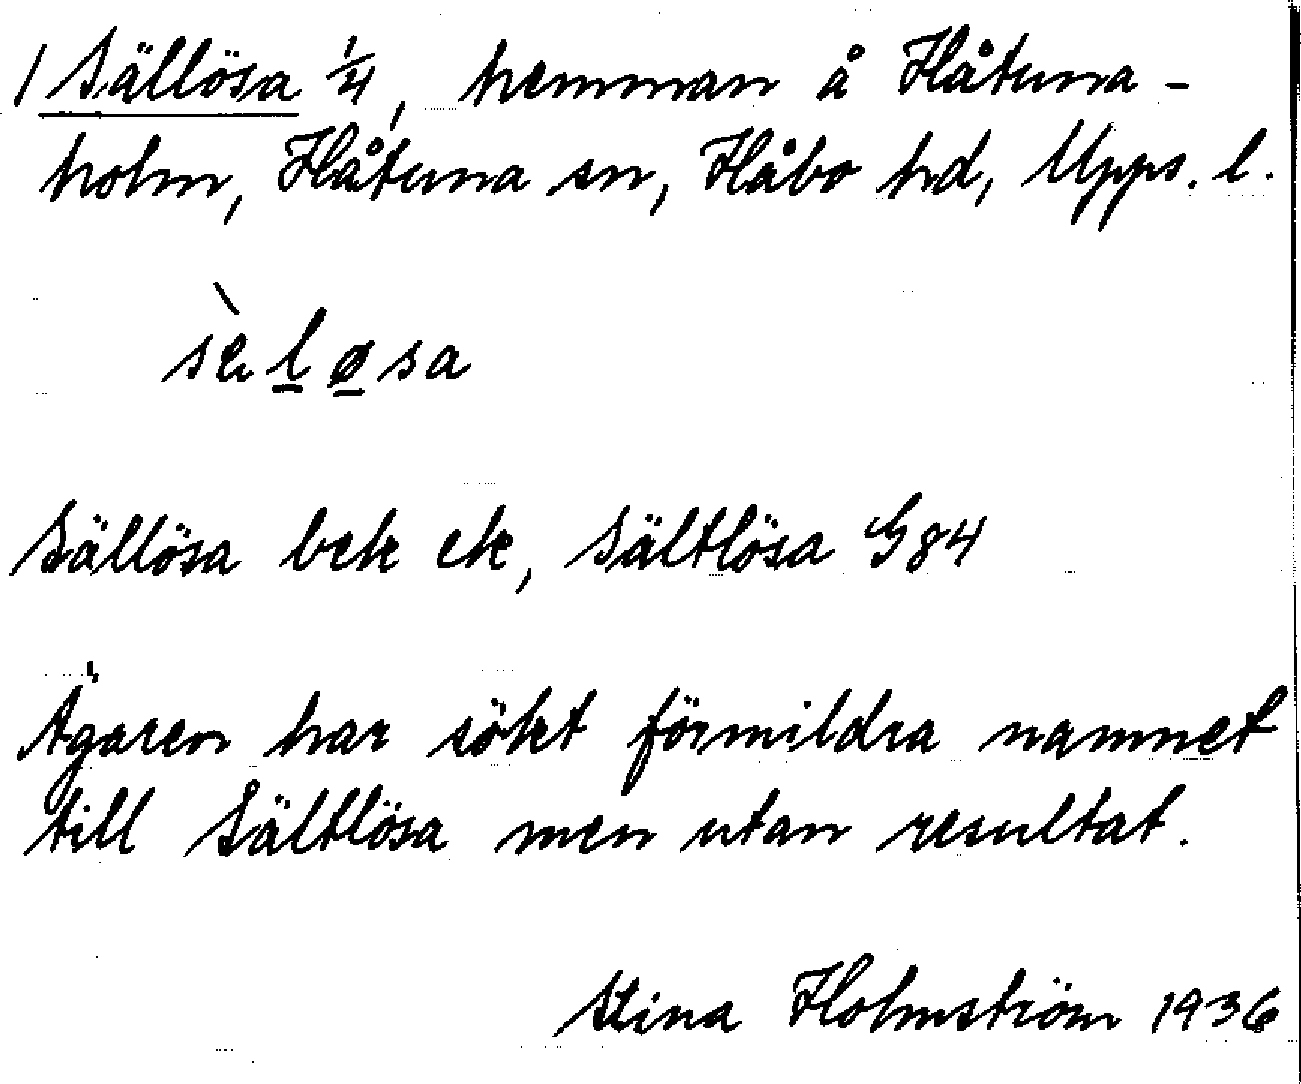 1 Sällösa 1/4, hemman å Håtuna-
holm, Håtuna sn, Håbo hd, Upps. l.
sèløsa
Sällösa bek ek, Sältlösa G84
Ägaren har sökt förmildra namnet
till Sältlösa men utan resultat.
Stina Holmström 1936